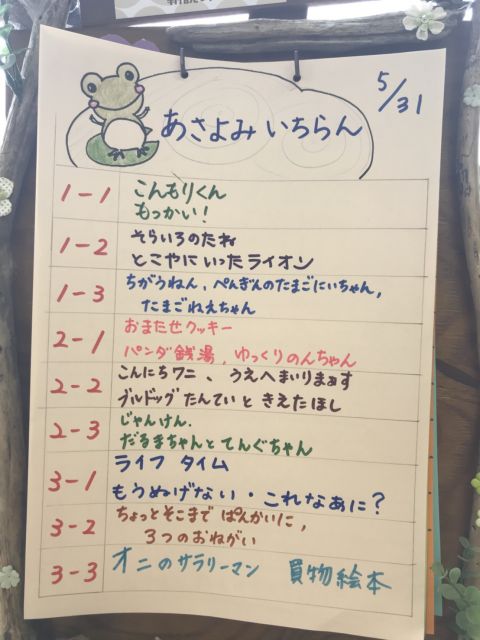 5/31
あさよみ いちらん
1-1 こんもりくん
もっかい!
1-2 そらいろのたね
とこやにいったライオン
1-3 ちがうねん、ぺんぎんのたまごにいちゃん,
たまごねえちゃん
2-1 おまたせクッキー
パンダ銭湯、ゆっくりのんちゃん
2-2 こんにちワニ、うえへまいりまぁす
ブルドッグたんていときえたほし
2-3 じゃんけん.
だるまちゃんとてんぐちゃん
3-1 ライフ タイム
もうぬげない・これなあに?
3-2 ちょっとそこまで ぱんかいに,
3つのおねがい
3-3 オニのサラリーマン 買物絵本